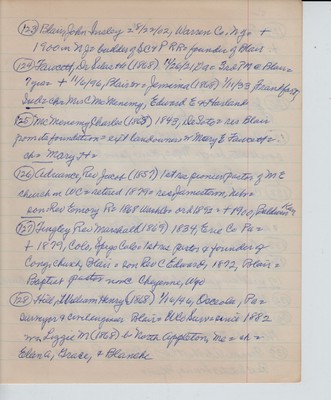 (123) Blair, John Insley 2/22/02, Warren Co NJ = +
1900 in NJ = builder of SC + P RR = founder of Blair
(124) Fawcett, Dr Silas H (1868) 1/26/21 Pa = 3rd MD Blair =
+ 11/6/96, Blair = Jemima (1868) 1/11/33 Frankfort,
Ind = ch = Mrs C McMenemy, Edward E + Harland
(125) McMenemy Charles (1865) 1843, Detroit = res Blair
from its foundation = ext landowner = w Mary E Fawcett =
ch = Mary H =
(126) Adriance, Rev Jacob (1857) 1st res pioneer pastor of M E
church in WC = retired 1879 = res Jamestown, Nebr =
son Rev Emory R = 1868 ord 1892 = + 1900, Baldwin Kan
(127) Tingley Rev Marshall (1869) 1834, Erie Co Pa =
+ 1879, Colo, Spgs Colo = 1st res pastor + founder of
Cong church, Blair = son Rev C Edward, 1872, Blair =
Baptist pastor now @ Cheyenne, Wyo
(128) Hill, William Henry (1868) 1/16/46, Osceola, Pa =
surveyor + civil engineer Blair = WCo Surv = since 1882
w = Lizzie M (1868) b North Appleton, Me = ch =
Elanta, Grace, + Blanche